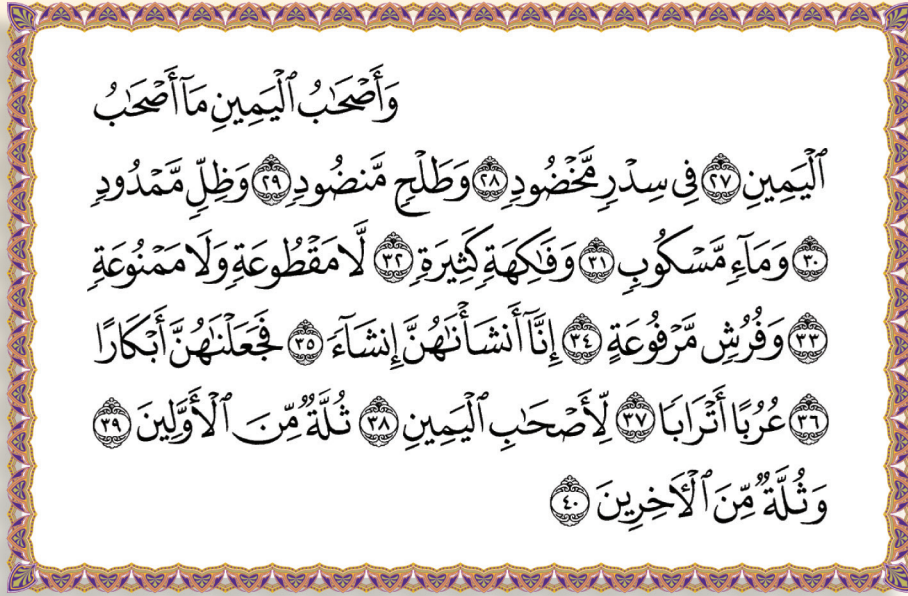 وَأَصْحَٰبُ ٱلْيَمِينِ مَآ أَصْحَٰبُ
ٱلْيَمِينِ ٢٧ فِى سِدْرٍ مَّخْضُودٍ ٢٨ وَطَلْحٍ مَّنضُودٍ ٢٩ وَظِلٍّ مَّمْدُودٍ
٣٠ وَمَآءٍ مَّسْكُوبٍ ٣١ وَفَٰكِهَةٍ كَثِيرَةٍ ٣٢ لَّا مَقْطُوعَةٍ وَلَا مَمْنُوعَةٍ
٣٣ وَفُرُشٍ مَّرْفُوعَةٍ ٣٤ إِنَّآ أَنشَأْنَٰهُنَّ إِنشَآءً ٣٥ فَجَعَلْنَٰهُنَّ أَبْكَارًا
٣٦ عُرُبًا أَتْرَابًا ٣٧ لِّأَصْحَٰبِ ٱلْيَمِينِ ٣٨ ثُلَّةٌ مِّنَ ٱلْأَوَّلِينَ ٣٩
وَثُلَّةٌ مِّنَ ٱلْأَخِرِينَ ٤٠